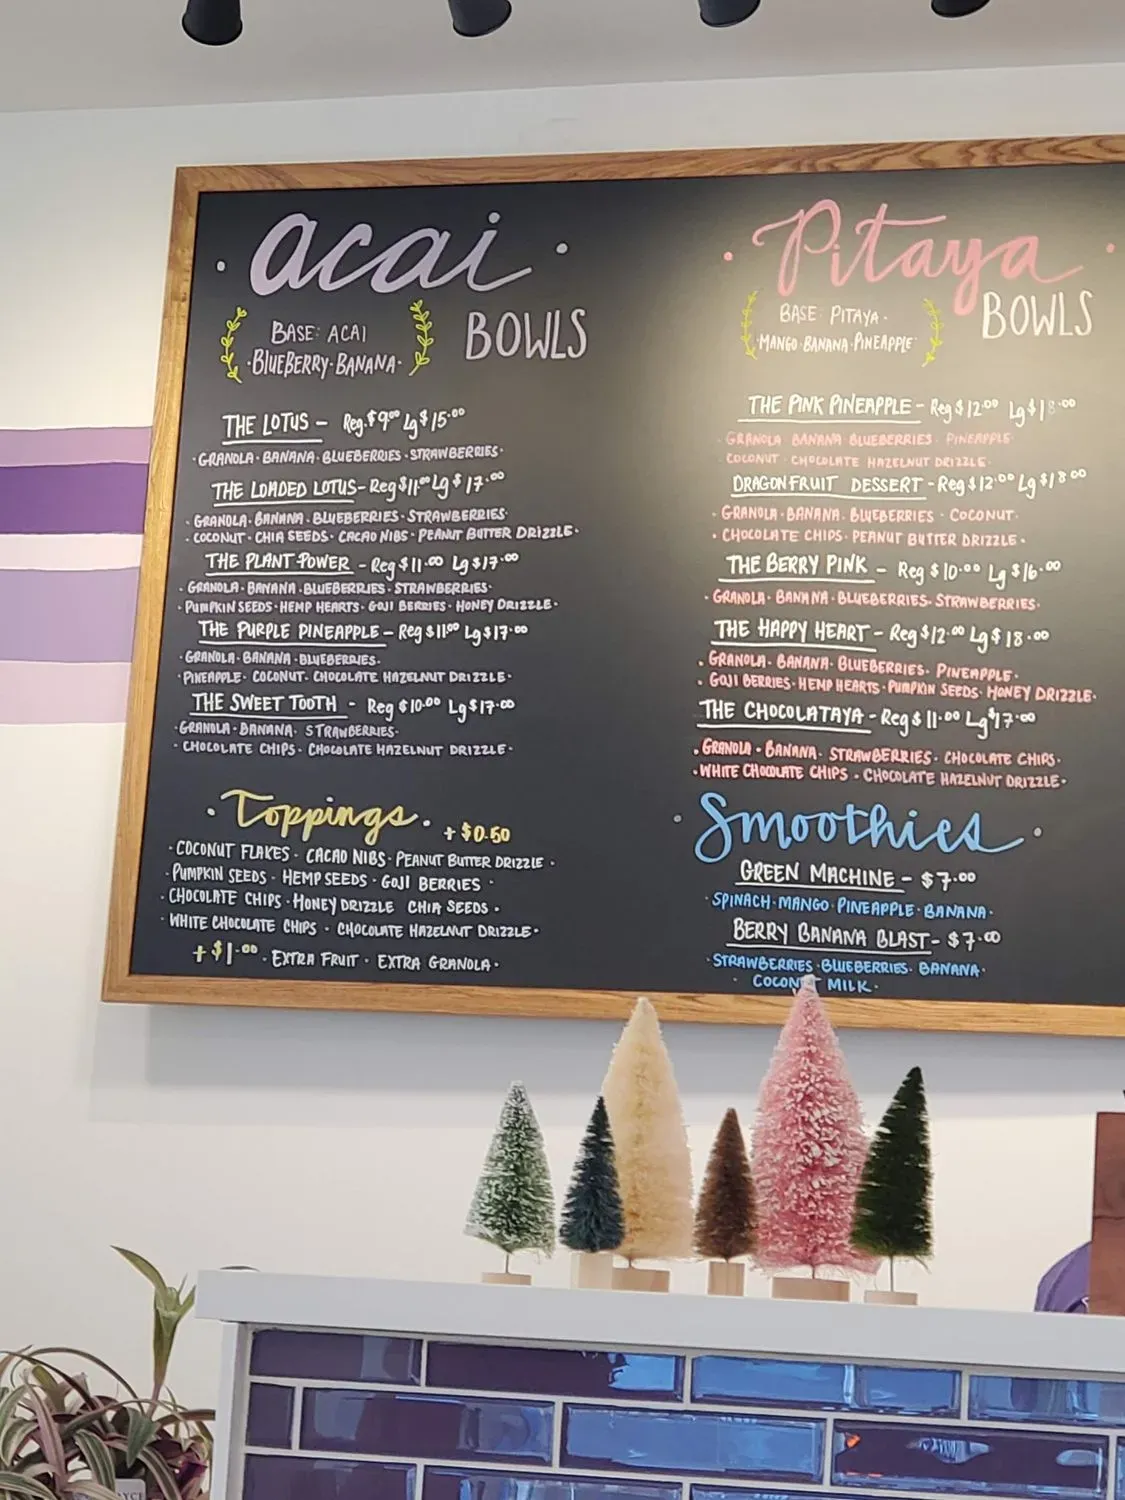 acai
BOWLS
BASE: ACAI
·BLUEBERRY·BANANA·
THE LOTUS – Reg.$9.00 Lg$15.00
·GRANOLA·BANANA·BLUEBERRIES·STRAWBERRIES·
THE LOADED LOTUS-Reg$11.00 Lg$17.00
·GRANOLA·BANANA·BLUEBERRIES·STRAWBERRIES·
·COCONUT·CHIA SEEDS·CACAO NIBS·PEANUT BUTTER DRIZZLE·
THE PLANT POWER -Reg$11.00 Lg$17.00
·GRANOLA·BANANA·BLUEBERRIES·STRAWBERRIES·
·PUMPKIN SEEDS·HEMP HEARTS·GOJI BERRIES·HONEY DRIZZLE·
THE PURPLE PINEAPPLE–Reg$11.00 Lg$17.00
·GRANOLA·BANANA·BLUEBERRIES·
·PINEAPPLE·COCONUT·CHOCOLATE HAZELNUT DRIZZLE·
THE SWEET TOOTH - Reg$10.00 Lg$17.00
·GRANOLA·BANANA·STRAWBERRIES·
·CHOCOLATE CHIPS·CHOCOLATE HAZELNUT DRIZZLE·
·Toppings· + $0.50
·COCONUT FLAKES·CACAO NIBS·PEANUT BUTTER DRIZZLE·
·PUMPKIN SEEDS·HEMP SEEDS·GOJI BERRIES·
·CHOCOLATE CHIPS·HONEY DRIZZLE CHIA SEEDS·
·WHITE CHOCOLATE CHIPS·CHOCOLATE HAZELNUT DRIZZLE·
+$1.00·EXTRA FRUIT·EXTRA GRANOLA·
·Pitaya·
BOWLS
BASE: PITAYA·
·MANGO·BANANA·PINEAPPLE·
THE PINK PINEAPPLE-Reg$12.00 Lg$18.00
·GRANOLA BANANA BLUEBERRIES·PINEAPPLE·
COCONUT·CHOCOLATE HAZELNUT DRIZZLE·
DRAGONFRUIT DESSERT-Reg$12.00 Lg$18.00
·GRANOLA·BANANA·BLUEBERRIES·COCONUT·
·CHOCOLATE CHIPS·PEANUT BUTTER DRIZZLE·
THE BERRY PINK – Reg$10.00 Lg$16.00
·GRANOLA·BANANA·BLUEBERRIES·STRAWBERRIES·
THE HAPPY HEART-Reg$12.00 Lg$18.00
·GRANOLA·BANANA·BLUEBERRIES·PINEAPPLE·
·GOJI BERRIES·HEMP HEARTS·PUMPKIN SEEDS·HONEY DRIZZLE·
THE CHOCOLATAYA-Reg$11.00 Lg$17.00
·GRANOLA·BANANA·STRAWBERRIES·CHOCOLATE CHIPS·
·WHITE CHOCOLATE CHIPS·CHOCOLATE HAZELNUT DRIZZLE·
·Smoothies·
GREEN MACHINE-$7.00
·SPINACH·MANGO·PINEAPPLE·BANANA·
BERRY BANANA BLAST-$7.00
·STRAWBERRIES·BLUEBERRIES·BANANA·
COCONUT MILK·